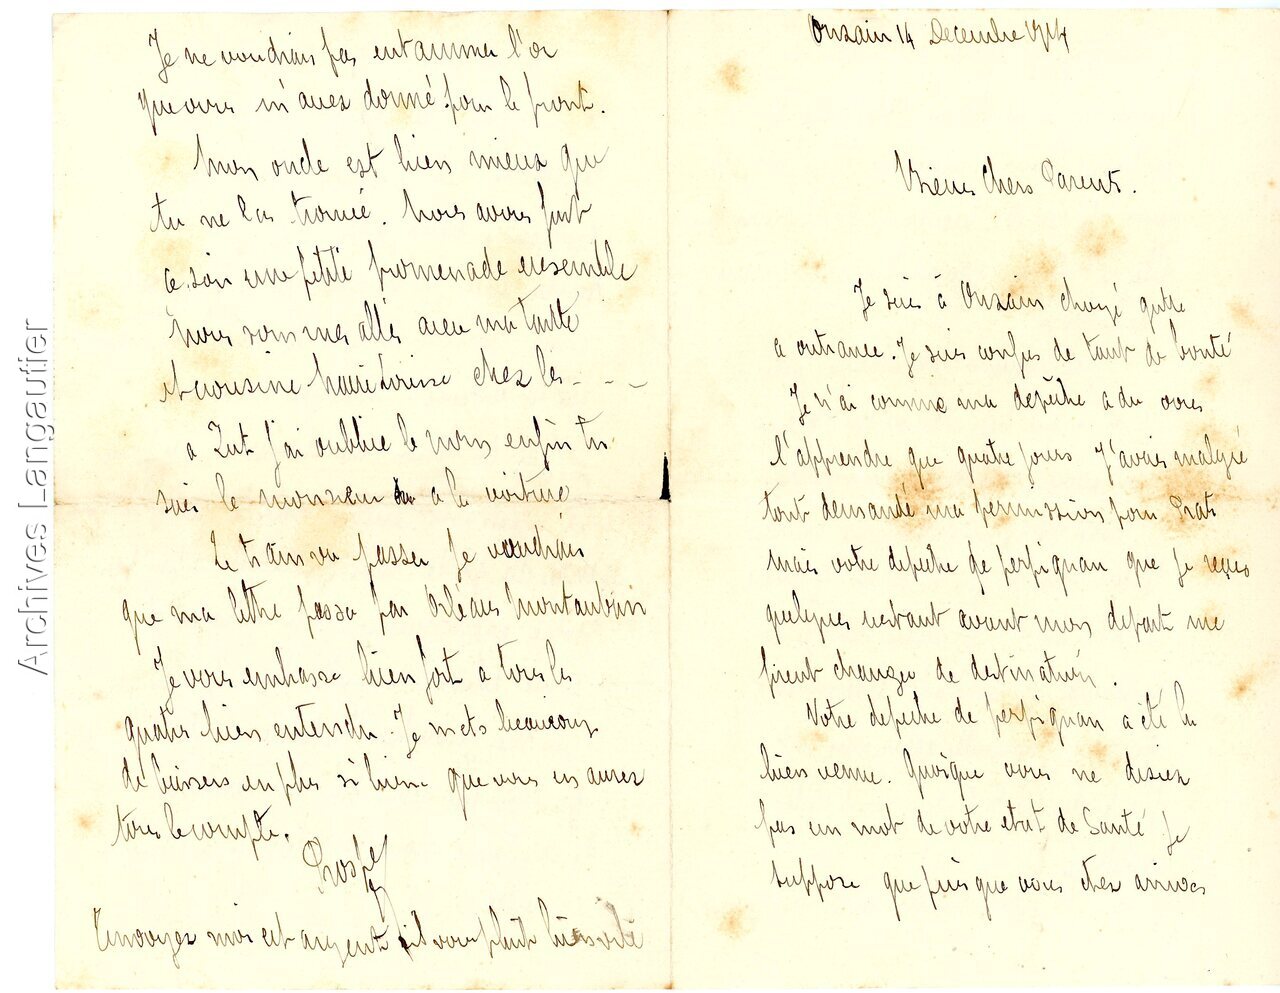 Onzain 14 Decembre 1914
Biens Chers Parents.
Je suis à Onzain choyé gatté
a outrance. Je suis confus de tant de bonté
Je n'ai comme ma depêche a du vous
l'apprendre que quatre jours J'avais malgré
tout demandé ma permission pour Prats
mais votre depêche de perpignan que je reçus
quelques instant avant mon depart me
firent changer de destination.
Votre depêche de perpignan a été la
bien venue. Quoique vous ne disiez
pas un mot de votre etat de Santé Je
suppose que puisque vous etes arrivés
Je ne voudrais pas entammer l'or
que vous m'avez donné pour le front.
Mon oncle est bien mieux que
tu ne l'as trouvé. Nous avons fait
ce soir une petite promenade ensemble
Nous sommes allés avec ma tante
et cousine Marie Louise chez les - - -
a Zut j'ai oublié le nom enfin tu
sais le monsieur a la voiture
Le train va passer Je voudrais
que ma lettre passe par Orléans Montauban
Je vous embrasse bien fort a tous les
quatre bien entendu. Je mets beaucoup
de baisers en plus si bien que vous en aurez
tous le compte.
Prosper
Envoyez moi cet argent s'il vous plait bien vite
Archives Langautier